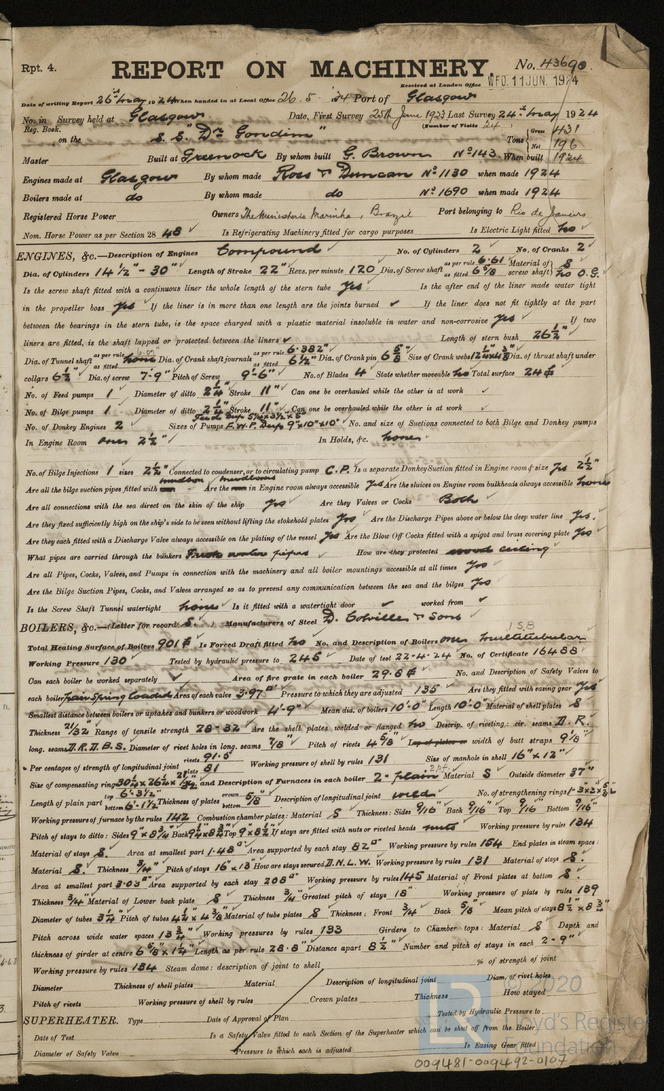 Rpt. 4.
REPORT ON MACHINERY
No. 43690.
Received at London Office WED. 11 JUN. 1924
Date of writing Report 26th May 1924 When handed in at Local Office 26. 5. 24 Port of Glasgow
No. in Survey held at Glasgow Date, First Survey 25th June 1923 Last Survey 24th May 1924
Reg. Book. (Number of Visits 24)
on the S.S. "Dr Gondim" Tons Gross 431 Net 196
Master Built at Greenock By whom built G. Brown No 143 When built 1924
Engines made at Glasgow By whom made Ross & Duncan No 1130 when made 1924
Boilers made at do By whom made do No 1690 when made 1924
Registered Horse Power Owners The Ministerio Marinha, Brazil Port belonging to Rio de Janeiro
Nom. Horse Power as per Section 28 48 Is Refrigerating Machinery fitted for cargo purposes Is Electric Light fitted no
ENGINES, &c.—Description of Engines Compound No. of Cylinders 2 No. of Cranks 2
Dia. of Cylinders 14½" - 30" Length of Stroke 22" Revs. per minute 120 Dia. of Screw shaft as per rule 6.61 as fitted 6⅞ Material of screw shaft S no O.G.
Is the screw shaft fitted with a continuous liner the whole length of the stern tube Yes Is the after end of the liner made water tight
in the propeller boss Yes If the liner is in more than one length are the joints burned ✓ If the liner does not fit tightly at the part
between the bearings in the stern tube, is the space charged with a plastic material insoluble in water and non-corrosive Yes If two
liners are fitted, is the shaft lapped or protected between the liners ✓ Length of stern bush 26½"
Dia. of Tunnel shaft as per rule as fitted none Dia. of Crank shaft journals as per rule 6.382" as fitted 6½" Dia. of Crank pin 6⅝ Size of Crank webs Dia. of thrust shaft under
collars 6½" Dia. of screw 7'-9" Pitch of Screw 9'-6" No. of Blades 4 State whether moveable no Total surface 24 ▢
No. of Feed pumps 1 Diameter of ditto 2¼" Stroke 11" Can one be overhauled while the other is at work ✓
No. of Bilge pumps 1 Diameter of ditto 2¼" Stroke 11" Can one be overhauled while the other is at work ✓
No. of Donkey Engines 2 Sizes of Pumps No. and size of Suctions connected to both Bilge and Donkey pumps
In Engine Room one 2½" In Holds, &c. none
No. of Bilge Injections 1 sizes 2½" Connected to condenser, or to circulating pump C.P. Is a separate Donkey Suction fitted in Engine room & size Yes 2½"
Are all the bilge suction pipes fitted with mudbox Are the mudboxes in Engine room always accessible Yes Are the sluices on Engine room bulkheads always accessible none
Are all connections with the sea direct on the skin of the ship Yes Are they Valves or Cocks Both
Are they fixed sufficiently high on the ship's side to be seen without lifting the stokehold plates Yes Are the Discharge Pipes above or below the deep water line Yes.
Are they each fitted with a Discharge Valve always accessible on the plating of the vessel Yes Are the Blow Off Cocks fitted with a spigot and brass covering plate Yes
What pipes are carried through the bunkers How are they protected wood ceiling
Are all Pipes, Cocks, Valves, and Pumps in connection with the machinery and all boiler mountings accessible at all times Yes
Are the Bilge Suction Pipes, Cocks, and Valves arranged so as to prevent any communication between the sea and the bilges Yes
Is the Screw Shaft Tunnel watertight none Is it fitted with a watertight door ✓ worked from ✓
BOILERS, &c.—(Letter for record S) Manufacturers of Steel D. Colville & Sons 1 S.B
Total Heating Surface of Boilers 901 ▢ Is Forced Draft fitted no No. and Description of Boilers one Multitubular
Working Pressure 130 Tested by hydraulic pressure to 245 Date of test 22-4-24 No. of Certificate 16488
Can each boiler be worked separately ✓ Area of fire grate in each boiler 29.5 ▢ No. and Description of Safety Valves to
each boiler pair Spring Loaded Area of each valve 3.97" Pressure to which they are adjusted 135 Are they fitted with easing gear Yes
Smallest distance between boilers or uptakes and bunkers or woodwork 4'-9" Mean dia. of boilers 10'-0" Length 10'-0" Material of shell plates S
Thickness 21/32 Range of tensile strength 28-32 Are the shell plates welded or flanged no Descrip. of riveting: cir. seams D.R.
long. seams D.R.D.B.S. Diameter of rivet holes in long. seams ⅞" Pitch of rivets 4⅝" Lap of plates or width of butt straps 9⅛"
Per centages of strength of longitudinal joint rivets 91.5 plates 81 Working pressure of shell by rules 131 Size of manhole in shell 16" x 12"
Size of compensating ring No. and Description of Furnaces in each boiler 2 - plain Material S Outside diameter 37"
Length of plain part top 6'-3½" bottom 6'-1½" Thickness of plates crown bottom ⅝" Description of longitudinal joint weld No. of strengthening rings
Working pressure of furnace by the rules 142 Combustion chamber plates: Material S Thickness: Sides 9/16" Back 9/16 Top 9/16 Bottom 9/16"
Pitch of stays to ditto: Sides 9" x 8¾" Back Top 9" x 8½" If stays are fitted with nuts or riveted heads nuts Working pressure by rules 134
Material of stays S. Area at smallest part 1.48" Area supported by each stay 82" Working pressure by rules 154 End plates in steam space:
Material S. Thickness ¾" Pitch of stays 16" x 13 How are stays secured D.N.L.W. Working pressure by rules 131 Material of stays S.
Area at smallest part 3.03" Area supported by each stay 208" Working pressure by rules 145 Material of Front plates at bottom S.
Thickness ¾" Material of Lower back plate S Thickness ¾" Greatest pitch of stays 15" Working pressure of plate by rules 139
Diameter of tubes 3¼ Pitch of tubes 4½ x 4⅜ Material of tube plates S Thickness: Front ¾ Back ⅝" Mean pitch of stays 8½" x 8¾"
Pitch across wide water spaces 13¾" Working pressures by rules 133 Girders to Chamber tops: Material S Depth and
thickness of girder at centre 6⅝ x 1¼" Length as per rule 28.8" Distance apart 8½" Number and pitch of stays in each 2 - 9"
Working pressure by rules 134 Steam dome: description of joint to shell % of strength of joint
Diameter Thickness of shell plates Material Description of longitudinal joint Diam. of rivet holes
Pitch of rivets Working pressure of shell by rules Crown plates Thickness How stayed
SUPERHEATER. Type Date of Approval of Plan Tested by Hydraulic Pressure to
Date of Test Is a Safety Valve fitted to each Section of the Superheater which can be shut off from the Boiler
Diameter of Safety Valve Pressure to which each is adjusted Is Easing Gear fitted
© 2020
Lloyd's Register
Foundation
009481-009492-0107